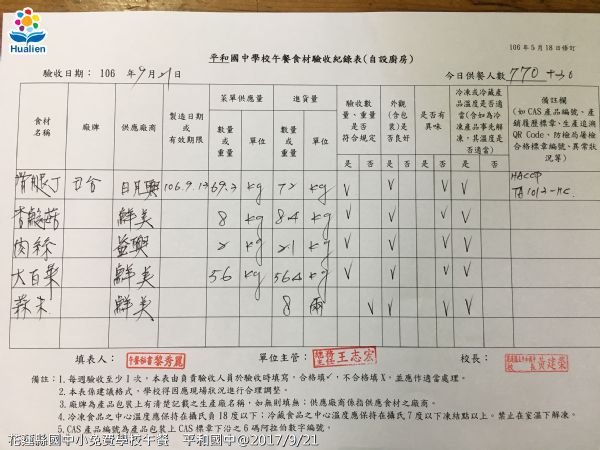 Hualien
106年5月18日修訂
平和國中學校午餐食材驗收紀錄表(自設廚房)
驗收日期: 106 年 9 月 21 日 今日供餐人數 770
食材名稱 廠牌 供應廠商 製造日期或有效期限 菜單供應量 進貨量 驗收數量、重量是否符合規定 外觀(含包裝)是否良好 是否有異味 冷凍或冷藏產品溫度是否適當(含如為冷凍產品事先解凍,其溫度是否適當) 備註欄(如CAS產品編號、產銷履歷標章、生產追溯QR Code、防檢局屠檢合格標章編號、異常狀況等)
數量或重量 單位 數量或重量 單位 是 否 是 否 是 否 是 否
日月興 kg kg V V V V HACCP
鮮美 8 kg 8.4 kg V V V V
肉絲 益興 2 kg 2.1 kg V V V V
大白菜 鮮美 56 kg 56.4 kg V V V V
蒜末 鮮美 8 兩 V V V
填表人: 午餐秘書黎秀麗 單位主管: 王志宏 校長:
備註:1.每週驗收至少1次,本表由負責驗收人員於驗收時填寫,合格填✓,不合格填X,並應作適當處理。
2.本表係建議格式,學校得因應現場狀況進行合理調整。
3.廠牌為產品包裝上有清楚記載之生產廠名稱,如無則填無;供應廠商係指供應食材之廠商。
4.冷凍食品之中心溫度應保持在攝氏負18度以下;冷藏食品之中心溫度應保持在攝氏7度以下凍結點以上。禁止在室溫下解凍。
5.CAS產品編號為產品包裝上CAS標章下沿之6碼阿拉伯數字編號。
花蓮縣國中小免費學校午餐 平和國中@2017/9/21